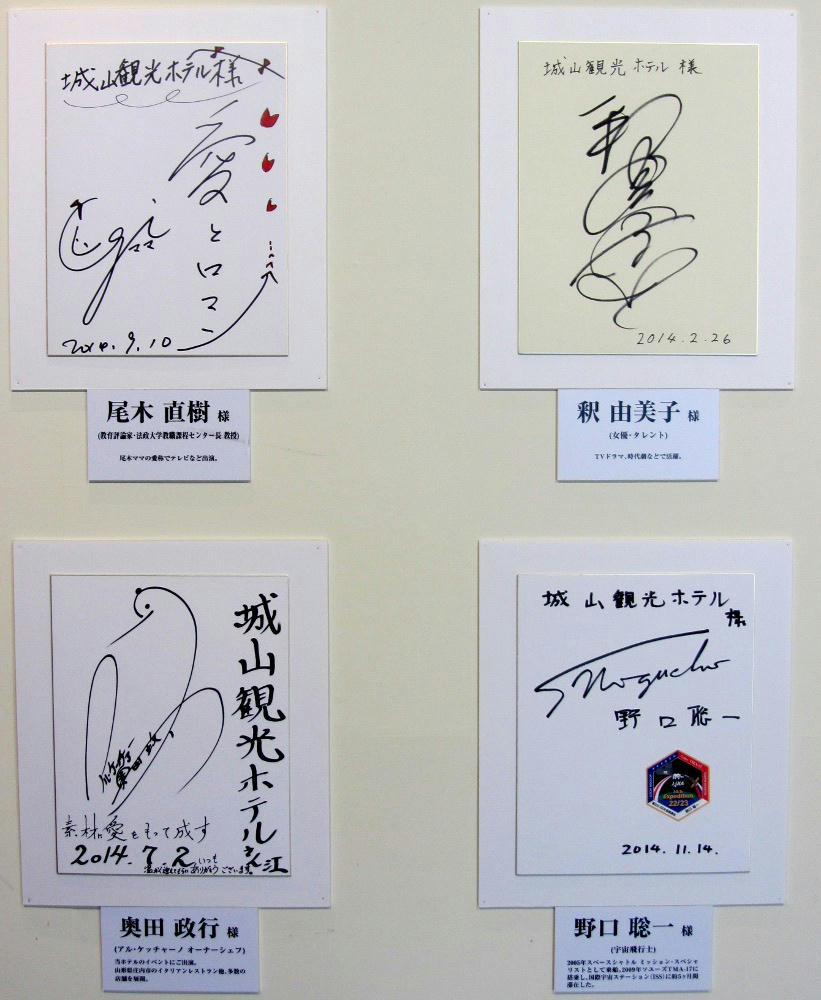 城山観光ホテル様
愛とロマン
2014.9.10
尾木 直樹 様
(教育評論家・法政大学教職課程センター長 教授)
尾木ママの愛称でテレビなど出演。
城山観光ホテル 様
2014.2.26
釈 由美子 様
(女優・タレント)
TVドラマ、時代劇などで活躍。
城山観光ホテルさん江
奥田政行
素材愛をもって成す
2014.7.2
いつも
ありがとうございます
奥田 政行 様
(アル・ケッチャーノ オーナーシェフ)
当ホテルのイベントにご出演。
山形県庄内市のイタリアンレストラン他、多数の
店舗を展開。
城山観光ホテル
様
S Noguchi
野口聡一
Expedition
22/23
2014.11.14.
野口 聡一 様
(宇宙飛行士)
2005年スペースシャトル ミッション・スペシャ
リストとして乗船。2009年ソユーズTMA-17に
搭乗し、国際宇宙ステーション(ISS)に約5ヶ月間
滞在した。